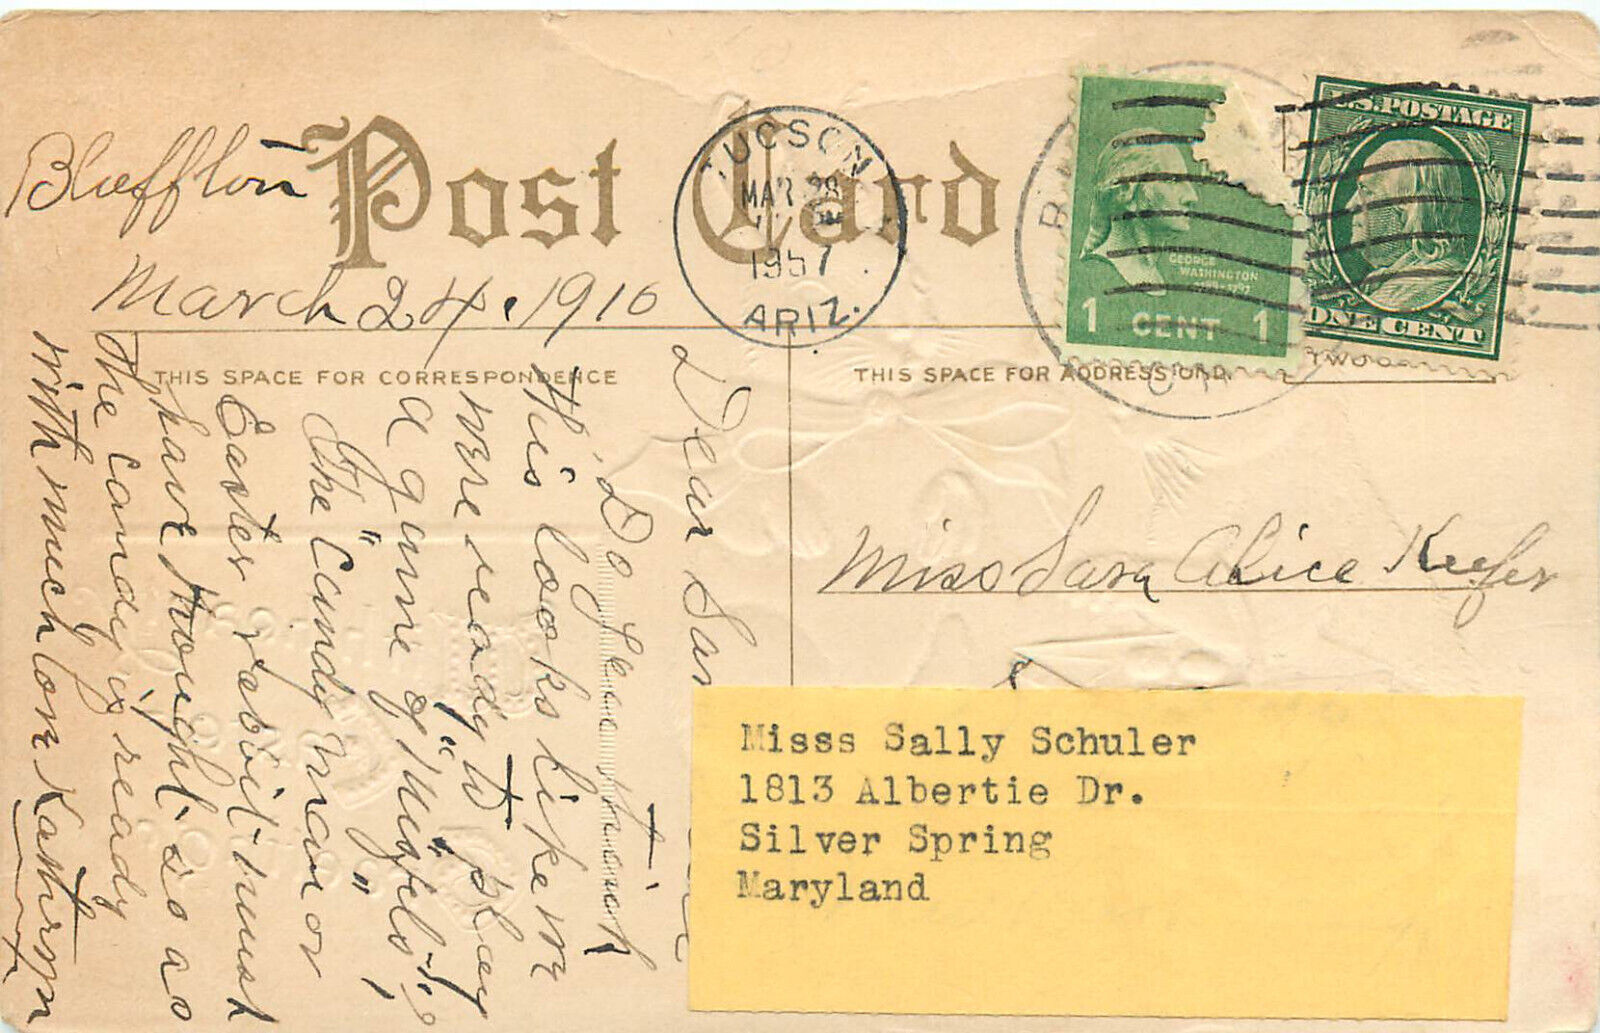 Bluffton
Post Card
March 24, 1910
TUCSON
MAR 28
1957
ARIZ.
U.S. POSTAGE
ONE CENT
GEORGE
WASHINGTON
1 CENT 1
TWO
THIS SPACE FOR CORRESPONDENCE
THIS SPACE FOR ADDRESS ONLY.
Dear Sar
Do you think
this looks like we
were ready to play
a game of
The "Candy man or
Easter rabit" must
have thought so as
the candy is ready
with much love Kathryn
Miss Sara Alice Keefer
Misss Sally Schuler
1813 Albertie Dr.
Silver Spring
Maryland